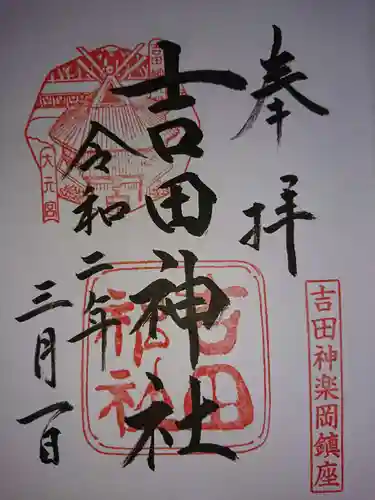 奉拝
吉田神楽岡鎮座
吉田神社
吉田神社
令和二年
三月一日
大元宮